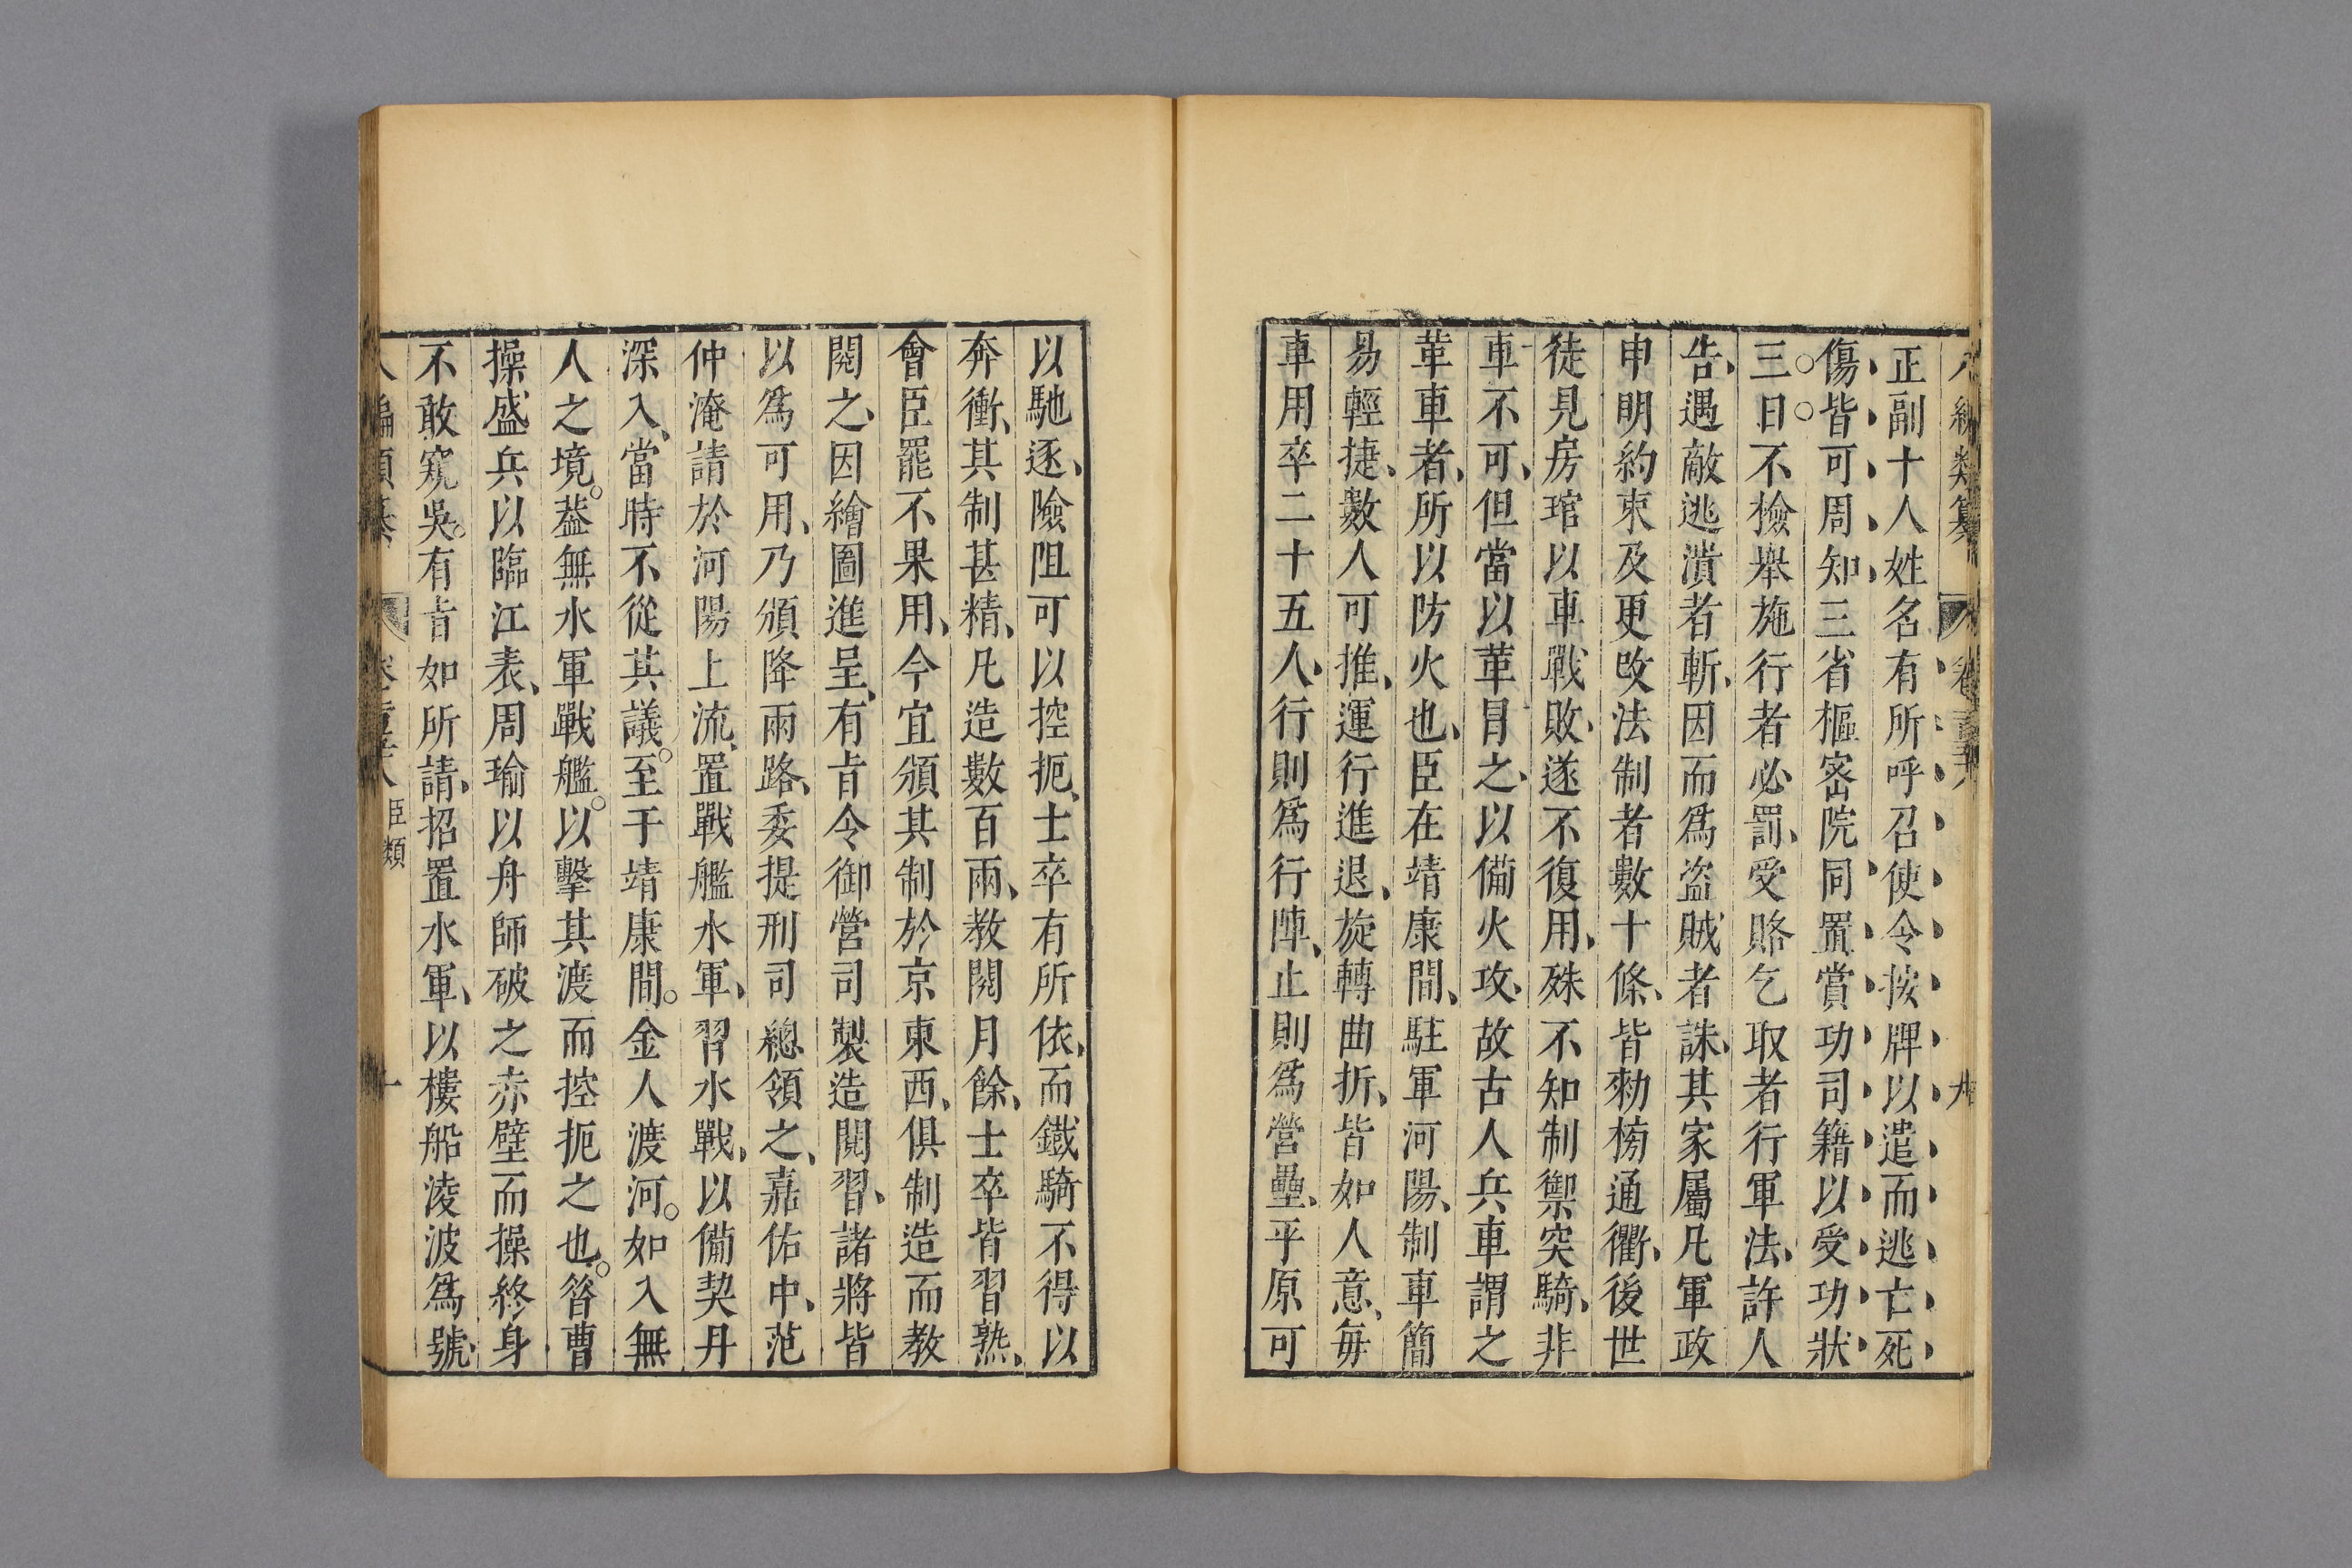 正副十人姓名有所呼召使令按牌以遣而逃亡死
傷皆可周知三省樞密院同置賞功司籍以受功狀
三日不檢舉施行者必罰受賂乞取者行軍法許人
告遇敵逃潰者斬因而爲盗賊者誅其家屬凡軍政
申明約束及更改法制者數十條皆勑榜通衢後世
徒見房琯以車戰敗遂不復用殊不知制禦突騎非
車不可但當以革冐之以備火攻故古人兵車謂之
革車者所以防火也臣在靖康間駐軍河陽制車簡
易輕捷數人可推運行進退旋轉曲折皆如人意毎
車用卒二十五人行則爲行陣止則爲營壘平原可
以馳逐險阻可以控扼士卒有所依而鐵騎不得以
奔衝其制甚精凡造數百兩教閱月餘士卒皆習熟
會臣罷不果用今宜頒其制於京東西俱制造而教
閱之因繪圖進呈有㫖令御營司製造閱習諸將皆
以爲可用乃頒降兩路委提刑司總領之嘉佑中范
仲淹請於河陽上流置戰艦水軍習水戰以備契丹
深入當時不從其議至于靖康間金人渡河如入無
人之境葢無水軍戰艦以擊其渡而控扼之也昝曹
操盛兵以臨江表周瑜以舟師破之赤壁而操終身
不敢窺吳有㫖如所請招置水軍以樓船淩波爲號
臣類